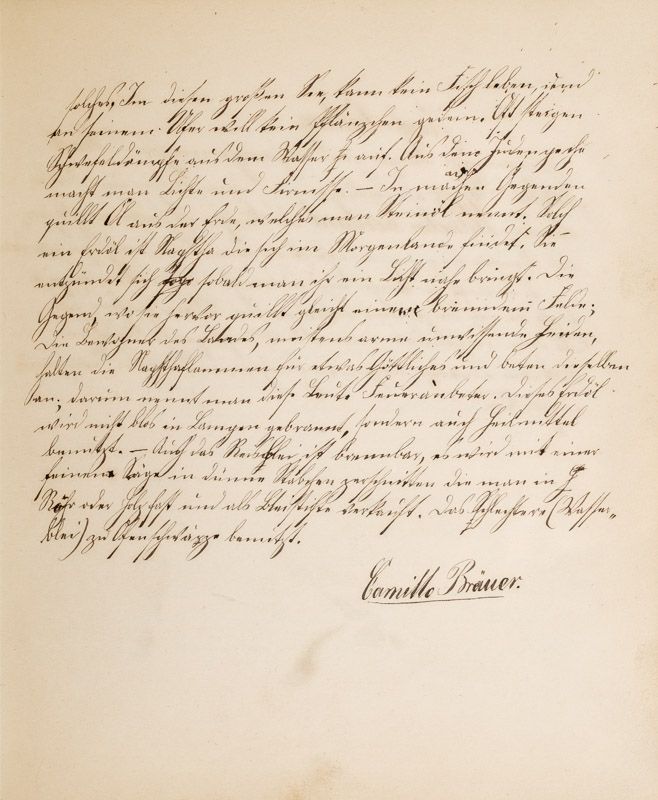 solches. Im diesen großen See, kann kein Fisch leben, und
an seinem Ufer will kein Pflänzchen gedein. Es steigen
Schwefeldämpfe aus dem Wasser auf. Aus dem Judenpeche
macht man Lichte und Firnisse. — In machen Gegenden
quillt Öl aus der Erde, welches man Steinöl nennt. Solch
ein Erdöl ist Naphtha die sich im Morgenlande findet. Sie
entzündet sich sobald man ihr ein Licht nahe bringt. Die
Gegend, wo sie hervor quillt gleicht einem brennendem Felde;
Die Bewohner des Landes, meistens arme unwissende Heiden,
halten die Naphthaflammen für etwas Göttliches und beten dieselben
an; darum nennt man diese Leute Feueranbeter. Dieses Erdöl
wird nicht blos in Lampen gebrannt, sondern auch Heilmittel
benutzt. — Auch das Reisblei ist brennbar, es wird mit einer
feinen Säge in dünne Stäbchen zerschnitten die man in
Rohr oder Holz faßt und als Bleistifte verkauft. Das Schlechtere (Wasser-
blei) zu Ofenschwärze benutzt.
Camillo Bräuer.